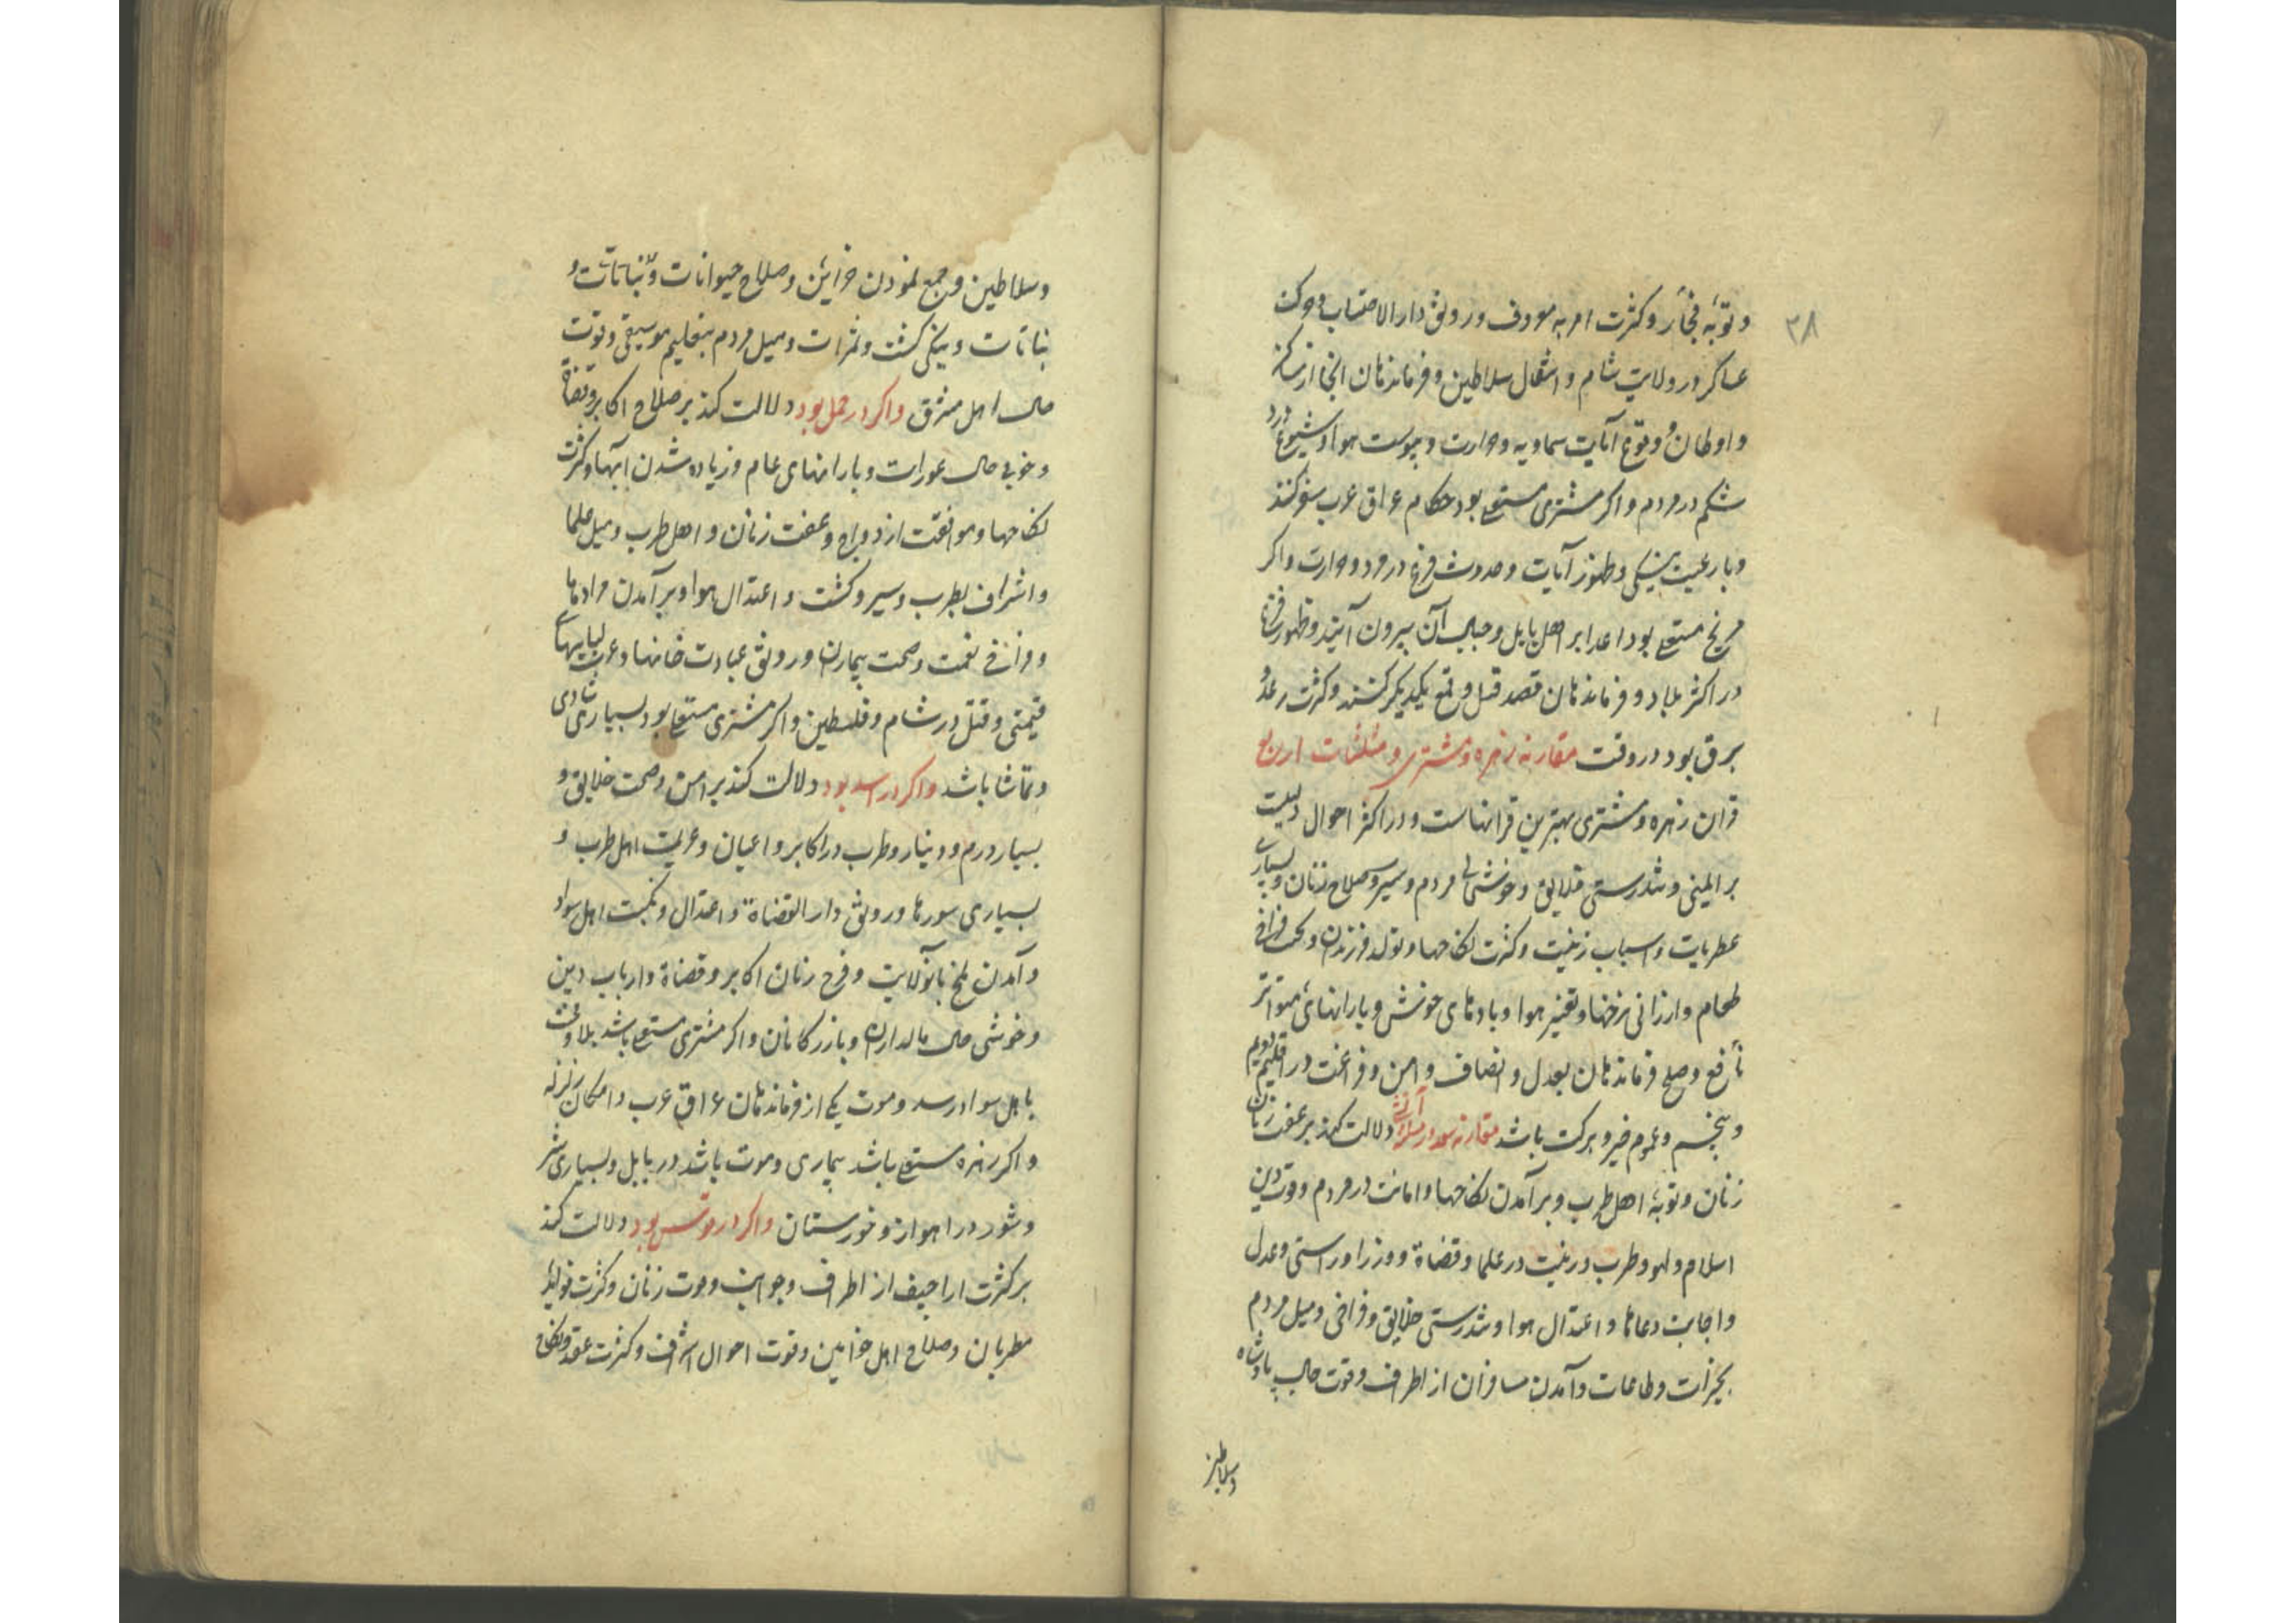 ۳۸
و توبهٔ فجّار و کثرت امر به معروف و رونق دار الاحتساب و حرکت
عساکر در ولایت شام و انتقال سلاطین و فرماندهان انجا از مساکن
و اوطان و وقوع آیات سماویه و حرارت و یبوست هوا و شیوع درد
شکم در مردم و اکر مشتری مستعلی بود حکام عراق عرب سفر کنند
و با رعیت نیکی و ظهور آیات و حدوث فزع در مرد و حرارت و اکر
مریخ مستعلی بود اعدا بر اهل بابل و جبال آن بیرون آیند و ظهور فتنها
در اکثر بلاد و فرماندهان قصد قتل و قمع یکدیکر کنند و کثرت رعد و
برق بود در وقت مقارنه زهره و مشتری و مثلثات اربع
قران زهره و مشتری بهترین قرانهاست و در اکثر احوال دلیلست
بر ایمنی و تندرستی خلایق و خوشحالی مردم و سیر و صلاح زنان و بسیاری
عطریات و اسباب زینت و کثرت نکاحها و تولد فرزندان و فراخی
طعام و ارزانی نرخها و تغییر هوا و بادهای خوش و بارانهای متواتر
نافع و صلح فرماندهان بعدل و انصاف و امن و فراغت در اقلیم دویم
و پنجم و عموم خیر و برکت باشد مقارنه در مثلثه آتشی دلالت کند بر عفت زنان
زنان و توبهٔ اهل طرب و برآمدن نکاحها و امانت در مردم و قوت دین
اسلام و لهو و طرب و زینت در علما و قضاة و وزرا و راستی و عدل
و اجابت دعاها و اعتدال هوا و تندرستی خلایق و فراخی و میل مردم
بخیرات و طاعات و آمدن مسافران از اطراف و قوت حال پادشاه
وسلاطین
و سلاطین و جمع نمودن خزاین و صلاح حیوانات و نباتات و
نباتات و نیکی کشت و ثمرات و میل مردم بتعلیم موسیقی و قوت
حال اهل مشرق و اکر در حمل بود دلالت کند بر صلاح اکابر و قضاة
و خوبی حال عورات و بارانهای عام و زیاده شدن ابها و کثرت
نکاحها و موافقت ازدواج و عفت زنان و اهل طرب و میل علما
و اشراف بطرب و سیر و کشت و اعتدال هوا و برآمدن مرادها
و فراخی نعمت و صحت بیماران و رونق عبادت خانها و عزت لباسهای
قیمتی و قتل در شام و فلسطین و اکر مشتری مستعلی بود بسیاری شادی
و تماشا باشد و اکر در اسد بود دلالت کند بر امن و صحت خلایق و
بسیار درم و دینار و طرب در اکابر و اعیان و عزیمت اهل طرب و
بسیاری سورها و رونق دار القضاة و اعتدال و نکبت اهل سواد
و آمدن ملخ بانولایت و فرح زنان اکابر و قضاة و ارباب دین
و خوشی حال مالداران و بازرکانان و اکر مشتری مستعلی باشد بلا و
باهل سواد رسد و موت یکی از فرماندهان عراق عرب و امکان زلزله
و اکر زهره مستعلی باشد بیماری و موت باشد در بابل و بسیاری شر
و شور در اهواز و خوزستان و اکر در قوس بود دلالت کند
بر کثرت اراجیف از اطراف و جوانب و موت زنان و کثرت فواید
مطربان و صلاح اهل خواتین و قوت احوال اشراف و کثرت عقد و نکاح